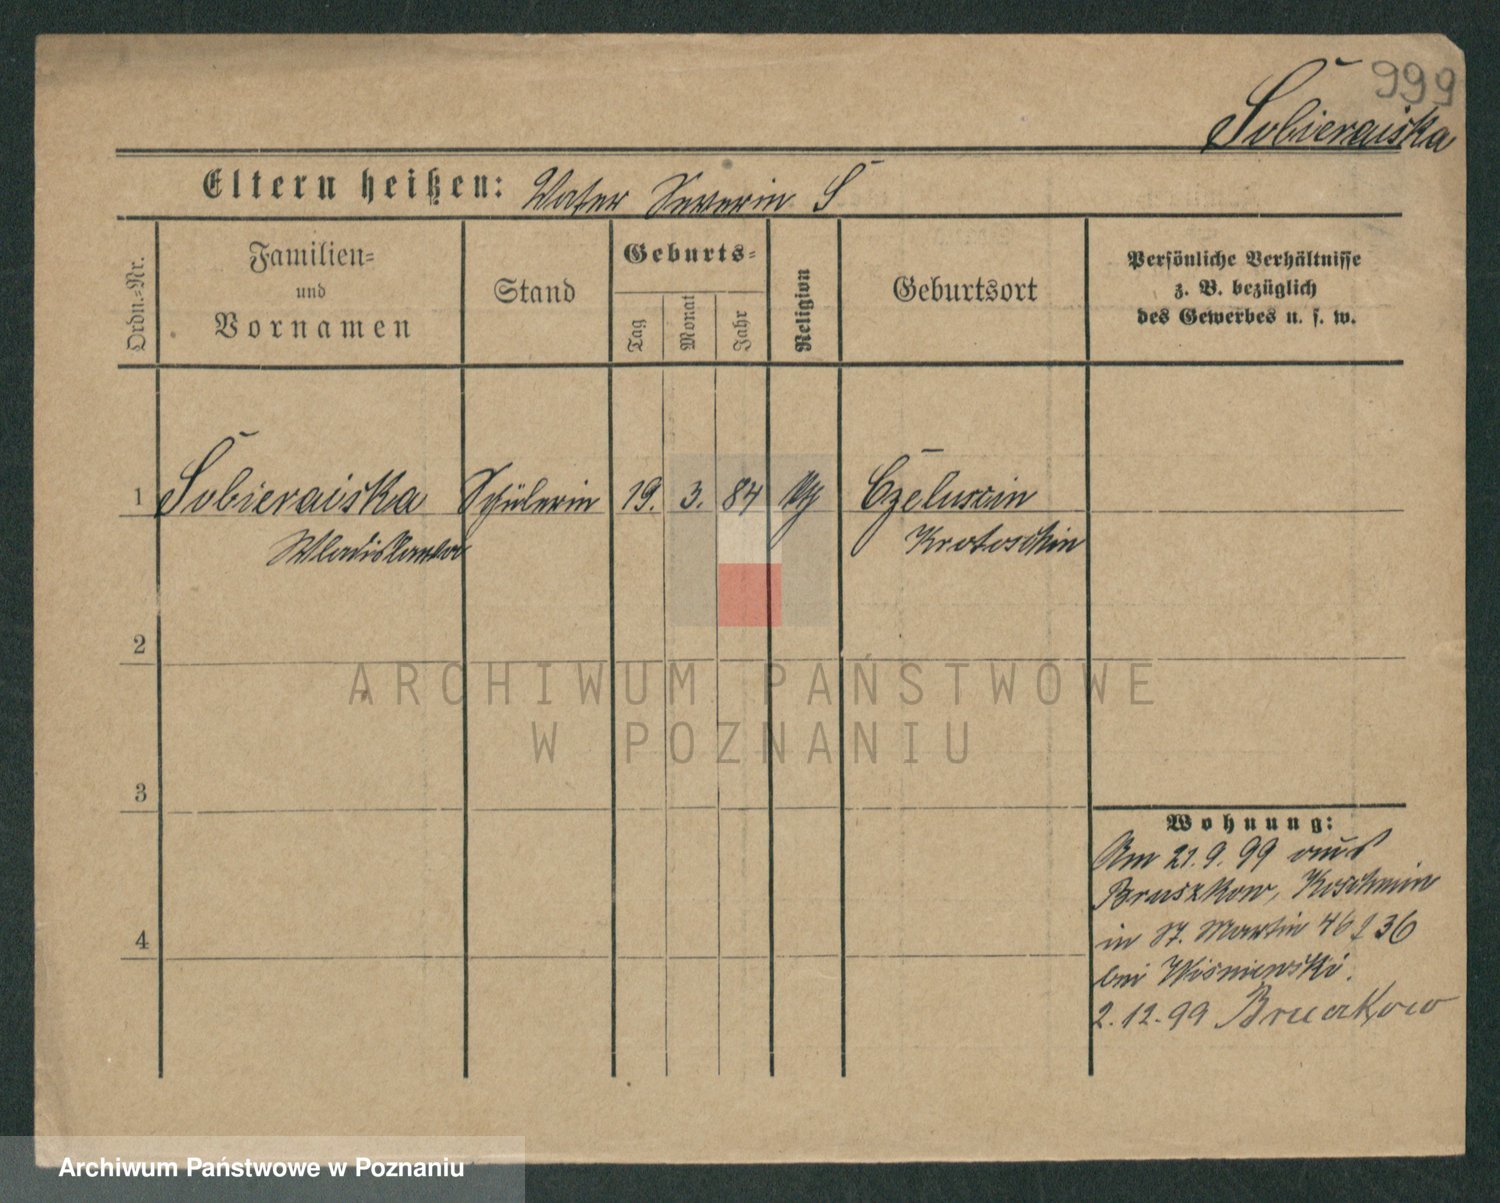 999
Sobierajska
Eltern heißen: Vater Severin S
Ordn.=Nr.
Familien=
und
Vornamen
Stand
Geburts=
Tag
Monat
Jahr
Religion
Geburtsort
Persönliche Verhältnisse
z. B. bezüglich
des Gewerbes u. s. w.
1 Sobierajska Schülerin 19. 3. 84 Czeluscin
Wladislawa Krotoschin
2
3
4
Wohnung:
Am 21.9.99 aus
Bruszkow, Koschmin
in St. Martin 46 36
bei Wisniewski.
2.12.99
ARCHIWUM PAŃSTWOWE
W POZNANIU
Archiwum Państwowe w Poznaniu